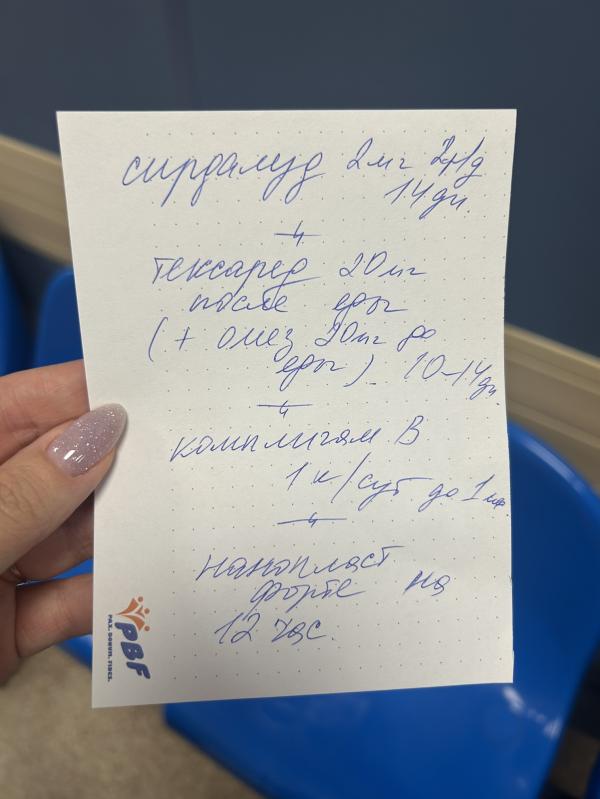 сирдалуд 2мг 2р/д
14дн.
тексаред 20мг
после еды
(+ омез 20мг до
еды). 10-14дн.
комплигам В
1 к/сут до 1 мес
нанопласт
форте на
12 час.
PBF
PAX. BONUM. FIDES.